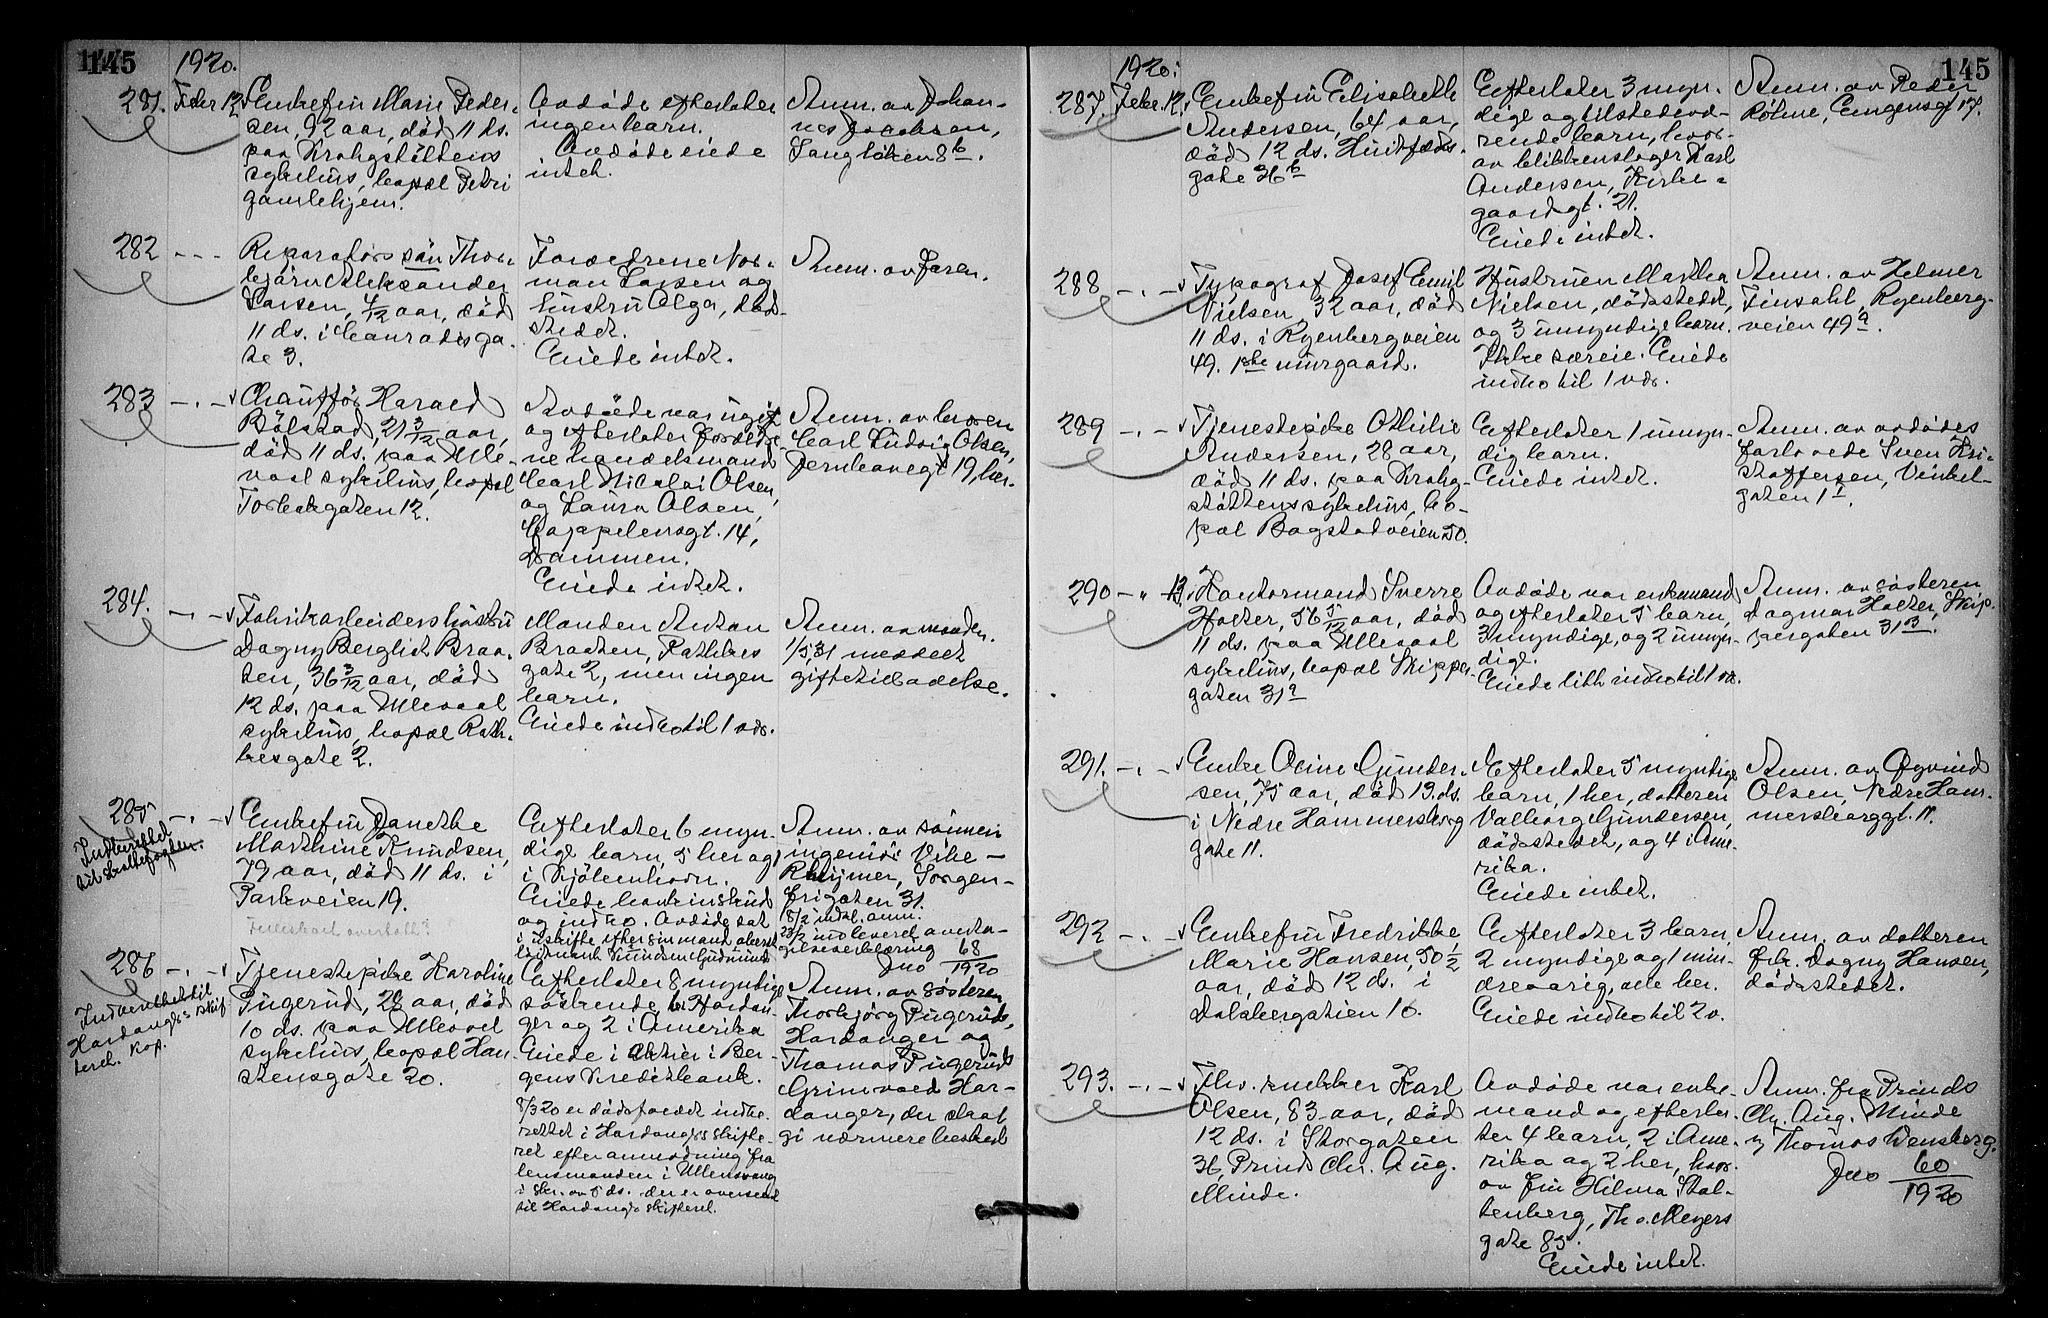 145
1920.
281. Febr 12. Enkefru Marie Peder-
sen, 92 aar, død 11 ds.
paa Krohgstøttens
sykehus, bopæl Petri
gamlehjem.
Avdøde efterlater
ingen barn.
Avdøde eiede
intet.
Anm. av Johan-
nes Jacobsen,
Langløkken 8b.
282 - - - Reparatørs søn Thor-
bjørn Aleksander
Larsen, 4/12 aar, død
11 ds. i Conradisga-
te 3.
Forældrene Nor-
man Larsen og
hustru Olga, død-
stedet.
Eiede intet.
Anm. av faren.
283 - . - Chauffør Harald
Bölstad, 21 3/12 aar,
død 11 ds. paa Ulle-
vaal sykehus, bopæl
Torbakgaten 12.
Avdøde var ugift
og efterlater foreldre-
ne handelsmand
Carl Nicolai Olsen,
og Laura Olsen,
Cappelensgt. 14,
Drammen.
Eiede intet.
Anm. av broren
Carl Ludvig Olsen,
Jernbanegt 19, her.
284. - . - Fabrikarbeiders hustru
Dagny Berglict Braa-
ten, 36 3/12 aar, død
12 ds. paa Ullevaal
sykehus, bopæl Rath-
kesgate 2.
Manden Anton
Braaten, Rathkes
gate 2, men ingen
barn.
Eiede indbo til 1 vds.
Anm. av manden.
1/5 31 meddelt
giftetilladelse.
285 - . - Enkefru Janetke
Mathine Knudsen,
79 aar, død 11 ds. i
Parkveien 19.
Indberettet
til skattefogden.
Efterlater 6 myn-
dige barn, 5 her og 1
i Kjøbenhavn.
Eiede bankinskud
og indbo. Avdøde sat
i uskifte efter sin mand
Knudsen Gudmund
Anm. av sønnen
ingeniør Vibe-
Rheymer, Sorgen-
frigaten 31.
8/2 indk. anm.
23/2 indleveret overta-
gelseserklæring
Jno 68/1920
286 - . - Tjenestepike Karoline
Pugerud, 28 aar, død
10 ds. paa Ullevaal
sykehus, bopæl Han-
steensgate 20.
Indberettet til
Hardangers skif
teret. Kop.
Efterlater 8 myndige
søskende, 6 i Hardan-
ger og 2 i Amerika
Eiede i aktier i Ber-
gens Kreditbank.
8/3 20 er dødsfaldet indbe-
rettet i Hardangers skifte-
ret efter anmodning fra
lensmanden i Ullensvang
i skr. av 5 ds. der er oversendt
til Hardangers skifteret.
Anm. av søsteren
Thorbjørg Pugerud,
Hardanger og
Thomas Pugerud
Grimvoed Har-
danger, der skal
gi nærmere beskeb
145
1920.
287. Febr. 12. Enkefru Elisabeth
Andersen, 64 aar,
død 12 ds. Huitfeldts-
gate 36 b
Efterlater 3 myn-
dige og tilstedevæ-
rende barn, hvor-
av blikkenslager Karl
Andersen, Kirke-
gaardsgt. 21.
Eiede intet.
Anm. av Peder
Röhne, Eugensgt 17.
288 - . - Typograf Josef Emil
Nielsen, 32 aar, død
11 ds. i Ryenbergveien
49. 1ste murgaard.
Hustruen Martha
Nielsen, dødsstedet,
og 3 umyndige barn.
Ikke særeie. Eiede
indbo til 1 vds.
Anm. av Helmer
Finsahl, Ryenberg-
veien 49 a.
289 - . - Tjenestepike Othilie
Andersen, 28 aar,
død 11 ds. paa Krohg-
støttens sykehus, bo-
pæl Bogstadveien 50.
Efterlater 1 umyn-
dig barn.
Eiede intet.
Anm. av avdødes
forlovede Sven Kri-
stoffersen, Vinkel-
gaten 1 I.
290 - " - 12. Kontormand Sverre
Holter, 56 5/12 aar, død
11 ds. paa Ullevaal
sykehus, bopæl Skipper
gaten 31 a
Avdøde var enkemand
og efterlater 5 barn,
3 myndige, og 2 umyn-
dige.
Eiede litt indbo til 1 vd.
Anm. av søsteren
Dagmar Holter, Skip-
pergaten 31 a.
291. - . - Enke Oline Gunder-
sen, 75 aar, død 13. ds.
i Nedre Hammersborg
gate 11.
Efterlater 5 myndige
barn, 1 her, datteren
Valborg Gundersen,
dødsstedet, og 4 i Ame-
rika.
Eiede intet.
Anm. av Øyvind
Olsen, Nedre Ham-
mersborggt. 11.
292 - . - Enkefru Fredrikke
Marie Hansen, 50 1/2
aar, død 12 ds. i
Dalsbergstien 10.
Efterlater 3 barn,
2 myndige og 1 min-
dreaarig, alle her.
Eiede indbo til 2 v.
Anm. av datteren
frk. Dagny Hansen,
dødsstedet.
293. - . - Fhv. snekker Karl
Olsen, 83 aar, død
12 ds. i Storgaten
36, Prinds Chr. Aug.
Minde.
Avdøde var enke-
mand og efterla-
ter 4 barn, 2 i Ame-
rika og 2 her, hvor-
av fru Hilma Stol-
tenberg, Th. v. Meyers
gate 85.
Eiede intet.
Anm. fra Prinds
Chr. Aug. Minde
v/ Thomas Wensberg.
Jno 60/1920